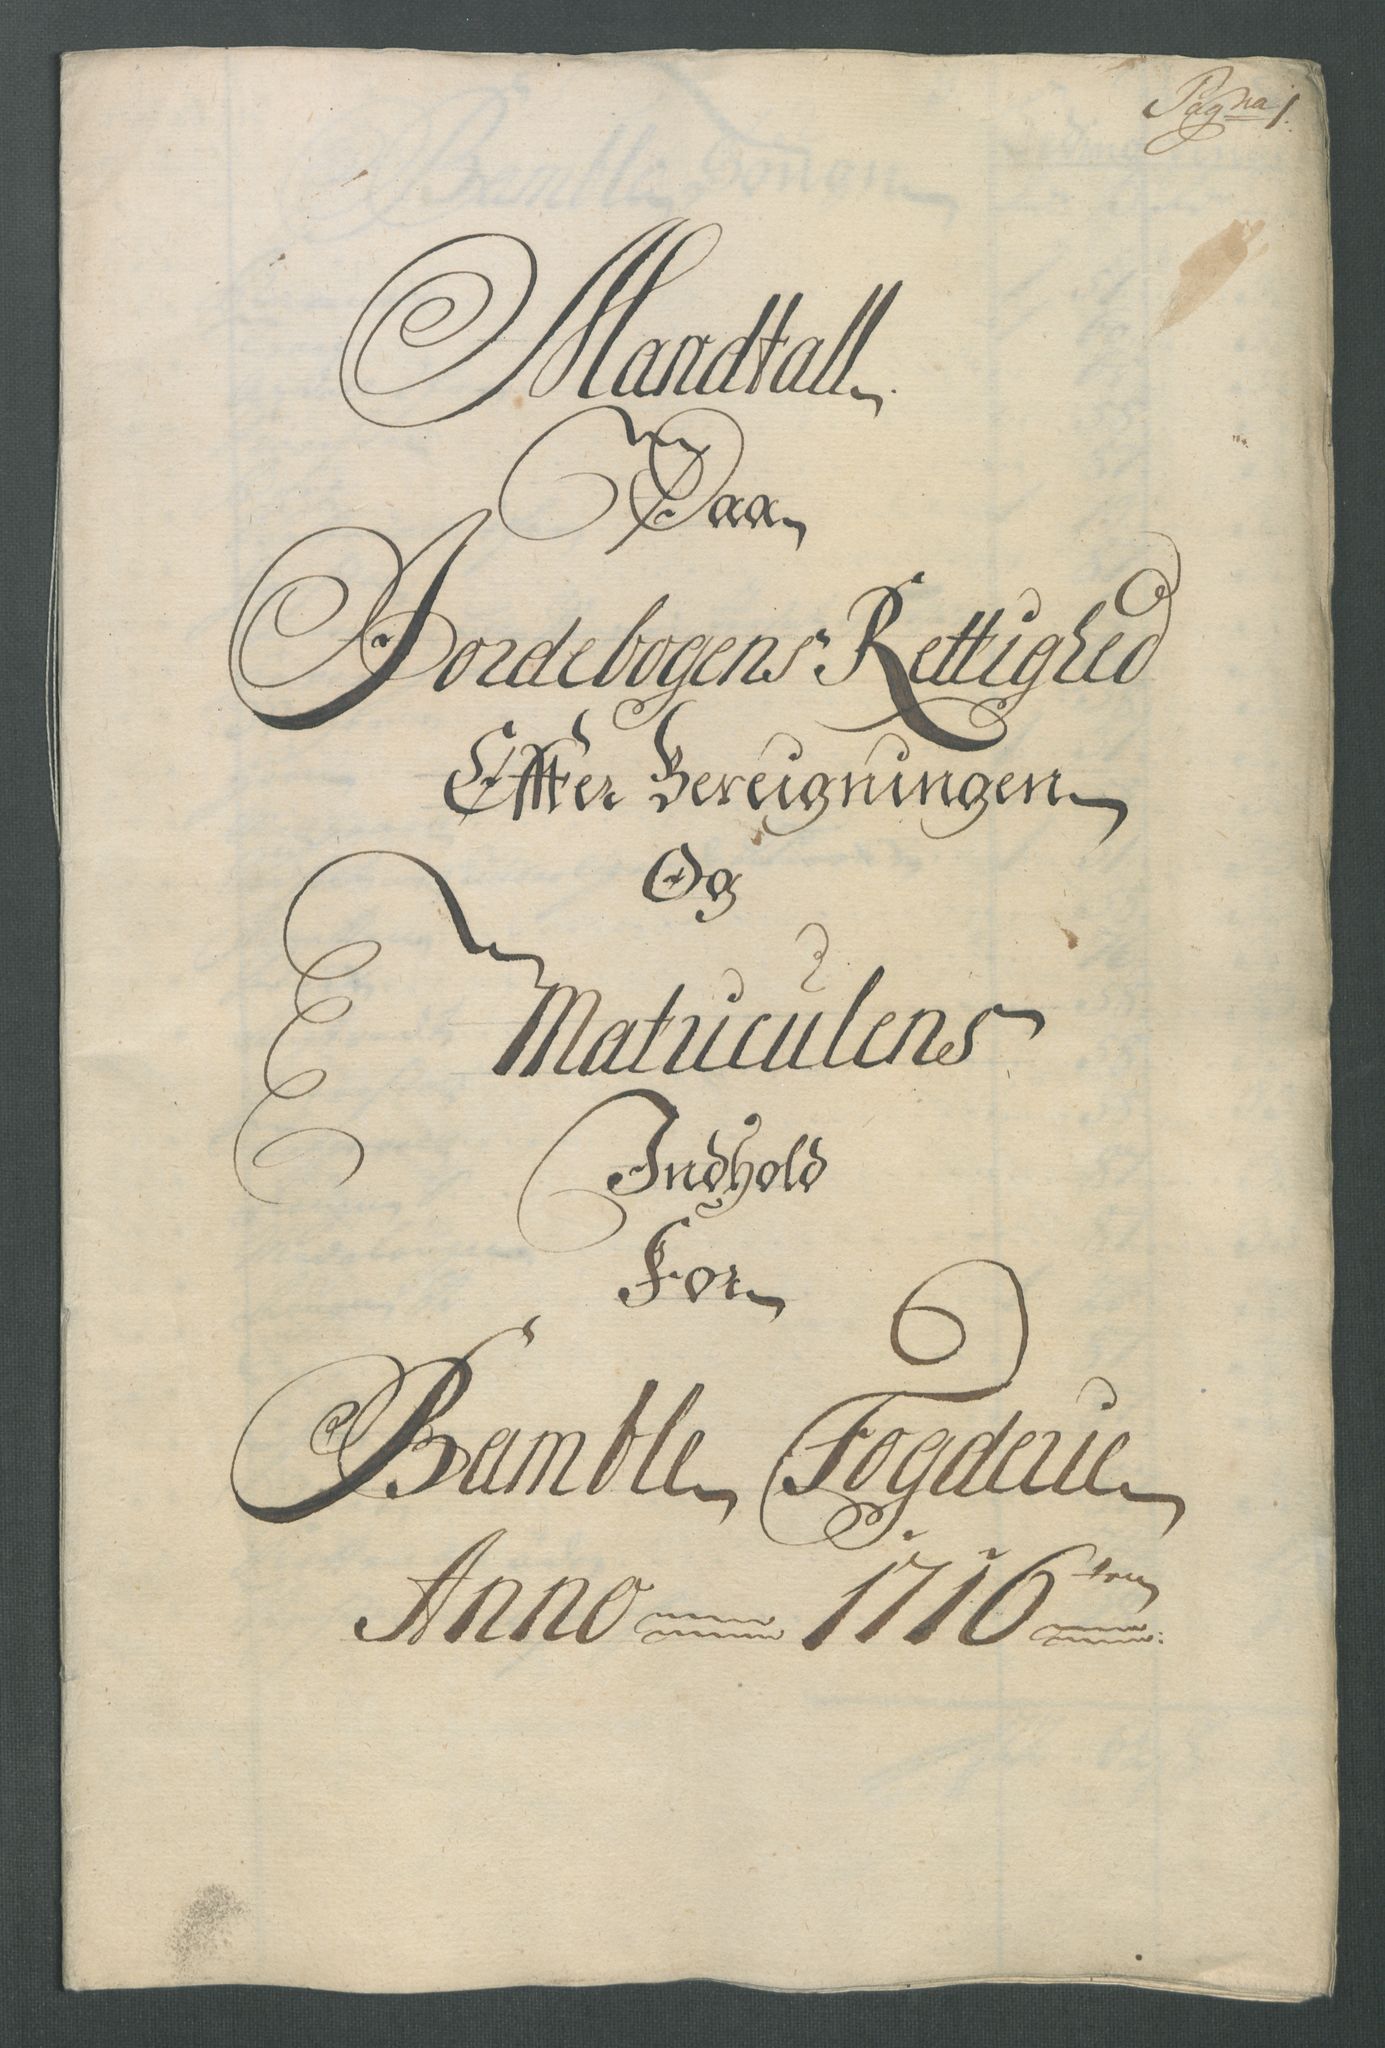 Pagina 1.
Mandtall
Paa
Jordebogens Rettighed
Effter Bereigningen
Og
Matriculens
Indhold
For
Bamble Fogderie
Anno 1716